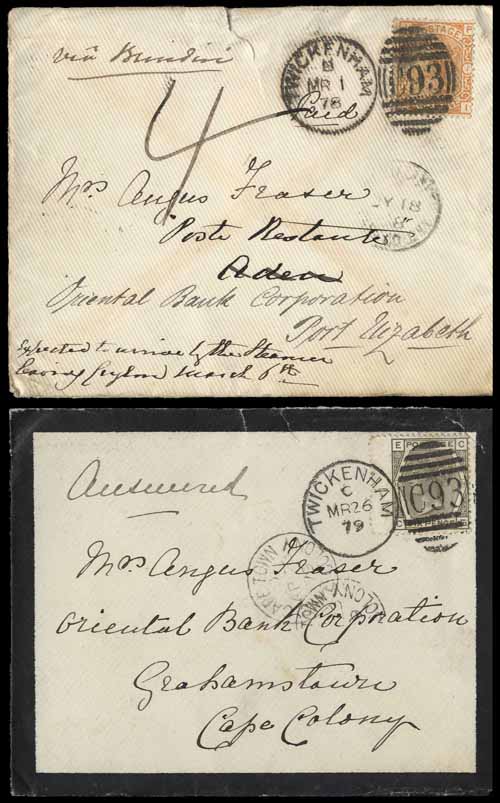 viâ Brindisi
TWICKENHAM
B
MR 1
78
POSTAGE
C93
4
Paid
Mrs Angus Fraser
Poste Restante
Aden
JY 18
Oriental Bank Corporation
Port Elizabeth
Expected to arrive by the Steamer
leaving Ceylon March 6th
Answered
TWICKENHAM
C
MR 26
79
E POSTAGE C
C93
CAPE TOWN
COLONY
Mrs Angus Fraser
Oriental Bank Corporation
Grahamstown
Cape Colony